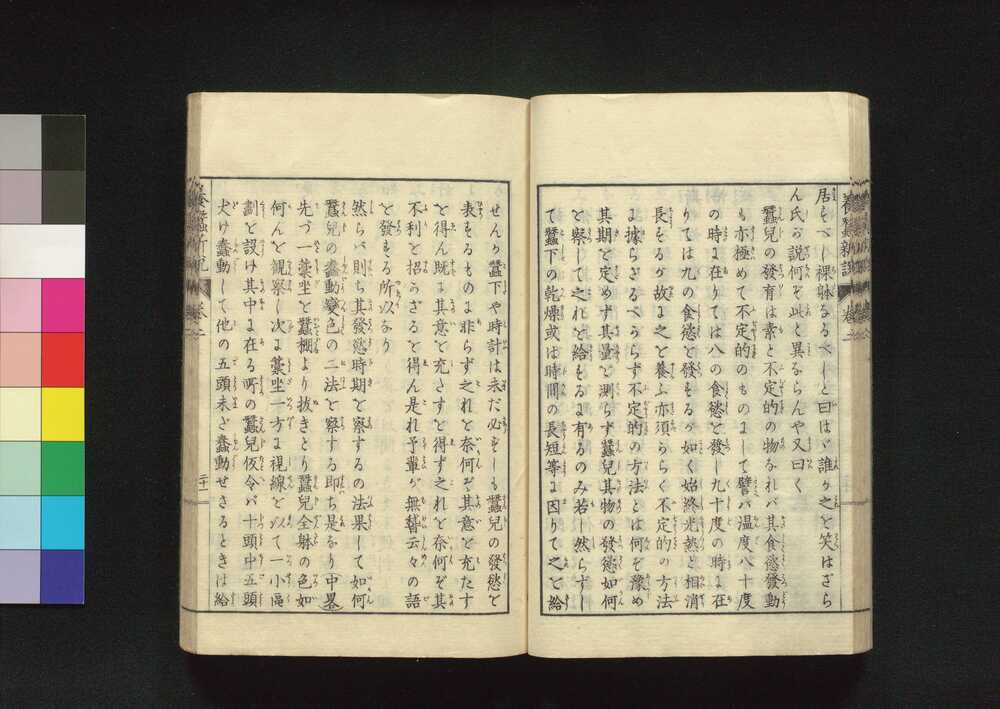 養蠶新説 巻二
居るべし裸躰なるべしと曰はゞ誰か之を笑はざら
ん氏の説何ぞ此と異ならんや又曰く
蠶兒の發育は素と不定的の物なれバ其食慾發動
も亦極めて不定的のものにして譬バ温度八十度
の時に在りては八の食慾を發し九十度の時に在
りては九の食慾を發するが如く始終光熱と相消
長をるが故に之を養ふ亦須らく不定的の方法
に據らざるべからず不定的の方法とは何ぞ豫め
其期を定めず其量を測らず蠶兒其物の發慾如何
を察して之れを給もるに有るのみ若し然らずし
て蠶下の乾燥或は時間の長短等に因りて之を給
せんか蠶下や時計は未だ必ずしも蠶兒の發慾を
表をるものに非らず之れを奈何ぞ其意を充たす
を得ん既に其意を充たすを得ず之れを奈何ぞ其
不利を招かざるを得ん是れ予輩が無替云々の語
を發もる所以なり
然らバ則ち其發慾時期を察するの法果して如何
蠶兒の蠢動變色の二法を察する即ち是なり中畧
先づ一藁坐を蠶棚より抜きとり蠶兒全躰の色如
何んを觀察し次に藁坐一方に視線を以て一小區
劃を設け其中に在る所の蠶兒假令バ十頭中五頭
犬け蠢動して他の五頭未だ蠢動せさるときは給
養蠶新説 巻二